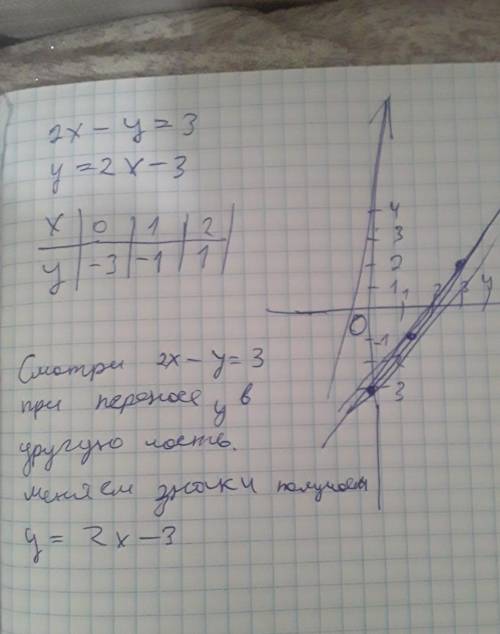 2x − y = 3
y = 2x − 3
x | 0 | 1 | 2 |
y | −3 | −1 | 1 |
4
3
2
1
1 2 3 4
0
-1
-2
3
Смотри 2x − y = 3
при переносе y в
другую часть.
меняем знаки получаем
y = 2x − 3